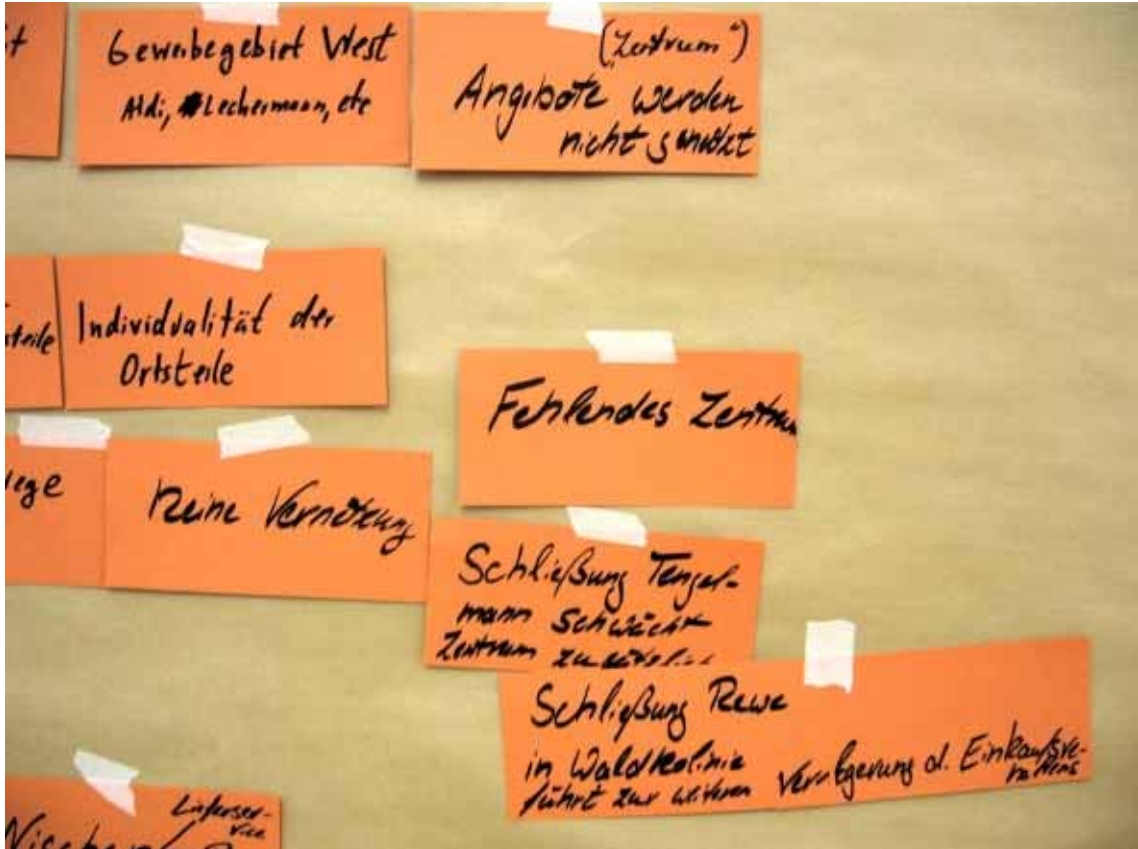 Gewerbegebiet West
Aldi, Lechermann, etc
("Zentrum")
Angebote werden
nicht genützt
steile
Individualität der
Ortsteile
Fehlendes Zentrum
ege
Keine Vernetzung
Schließung Tengel-
mann schwächt
Zentrum zusätzlich
Schließung Rewe
in Waldkolonie
führt zur weiteren Verlagerung d. Einkaufsver-
haltens
Lieferser-
vice